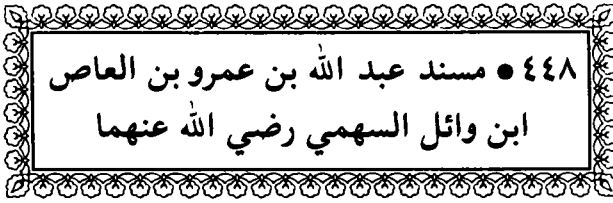 ٤٤٨ • مسند عبد الله بن عمرو بن العاص
ابن وائل السهمي رضي الله عنهما